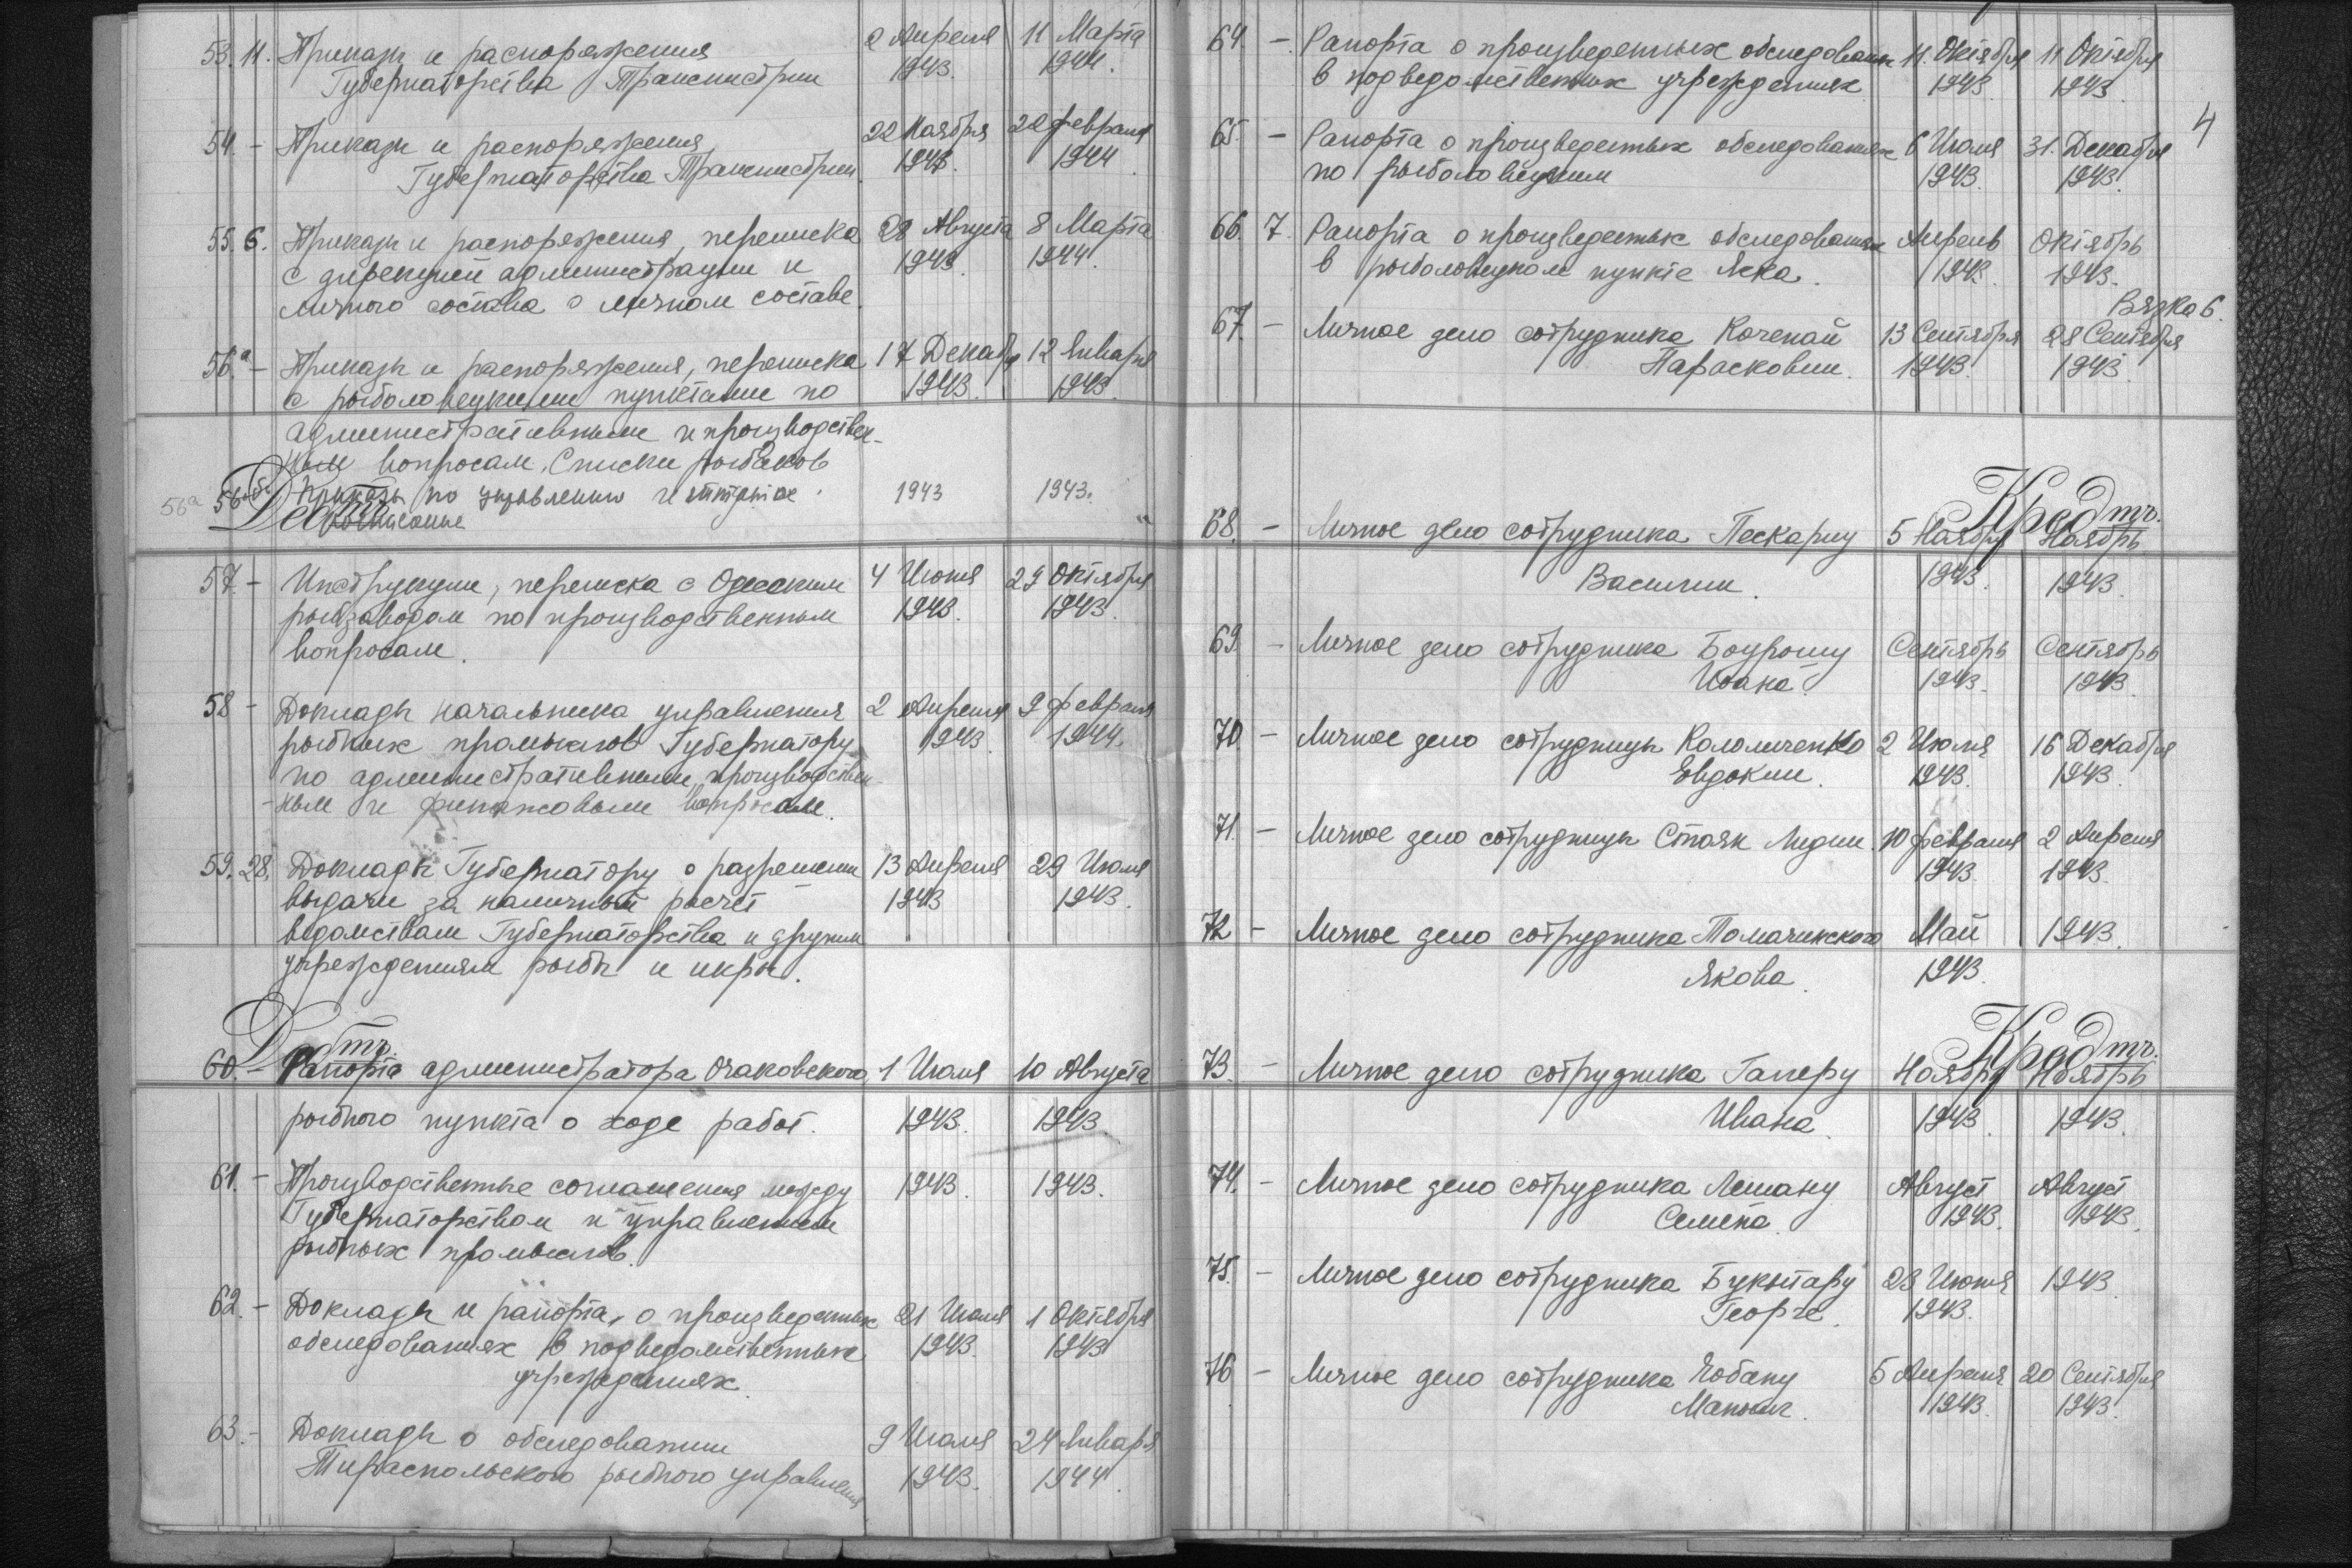 53. 11. Приказы и распоряжения 2 Апреля 11 Марта
Губернаторства Транснистрии 1943. 1944.
54. – Приказы и распоряжения 22 Ноября 22 февраля
Губернаторства Транснистрии 1943. 1944
55. 6. Приказы и распоряжения, переписка 28 Августа 8 Марта
с дирекцией администрации и 1943. 1944.
личного состава о личном составе.
56.а – Приказы и распоряжения, переписка 17 Декабр 12 Января
с рыболовецкими пунктами по 1943. 1943.
административным и производствен-
ным вопросам. Списки рыбаков
56а 56б. Приказы по управлению и штатное 1943 1943.
расписание "
Дебетъ
57. – Инструкции, переписка с Одесским 4 Июня 29 октября
рыбзаводом по производственным 1943. 1943.
вопросам.
58 – Доклады начальника управления 2 Апреля 9 февраля
рыбных промыслов Губернатору 1943. 1944.
по административным, производствен-
-ным и финансовым вопросам.
59. 28. Доклады Губернатору о разрешении 13 Апреля 29 Июля
выдачи за наличный расчет 1943 1943.
ведомствам Губернаторства и другим "
учреждениям рыбы и икры.
Дебетъ
60. – Рапорта администратора Очаковского 1 Июля 10 Августа
рыбного пункта о ходе работ. 1943. 1943
61. – Производственные соглашения между 1943. 1943.
Губернаторством и управлением
рыбных промыслов.
62. – Доклады и рапорта, о произведенных 21 Июля 1 Октября
обследованиях в подведомственных 1943. 1943
учреждениях.
63. – Доклады о обследовании 9 Июля 24 Января
Тираспольского рыбного управления 1943. 1944.
64. – Рапорта о произведенных обследованиях 11. Октября 11 Октября
в подведомственных учреждениях 1943. 1943.
4
65. – Рапорта о произведенных обследованиях 6 Июля 31. Декабря
по рыболовецким 1943. 1943.
66. 7. Рапорта о произведенных обследованиях Апрель Октябрь
в рыболовецком пункте Яска. 1943. 1943.
Вязка 6.
67. – Личное дело сотрудника Коченай 13 Сентября 28 Сентября
Парасковии. 1943. 1943.
Кредтъ.
68. – Личное дело сотрудника Пескариу 5 Ноября Ноябрь
Василии. 1943. 1943.
69. – Личное дело сотрудника Боурошу Сентябрь Сентябрь
Иоана. 1943. 1943.
70. – Личное дело сотрудницы Коломиченко 2 Июля 16 Декабря
Евдокии. 1943. 1943.
71. – Личное дело сотрудницы Стоян Лидии. 10 февраля 2 Апреля
1943. 1943.
72 – Личное дело сотрудника Томачинского Май 1943.
Якова. 1943.
Кредтъ.
73. – Личное дело сотрудника Гаперу Ноябрь Ноябрь
Ивана. 1943. 1943.
74. – Личное дело сотрудника Лешану Август Август
Семена. 1943. 1943.
75. – Личное дело сотрудника Букытару 28 Июня 1943.
Георге. 1943.
76 – Личное дело сотрудника Чобану 5 Апреля 20 Сентября
1943. 1943.